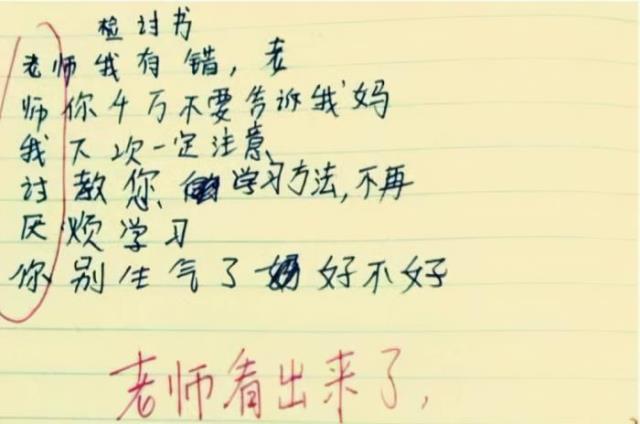 检讨书
老师我有错，老
师你千万不要告诉我妈
我下次一定注意
讨教您学习方法，不再
厌烦学习
你别生气了好不好
老师看出来了，